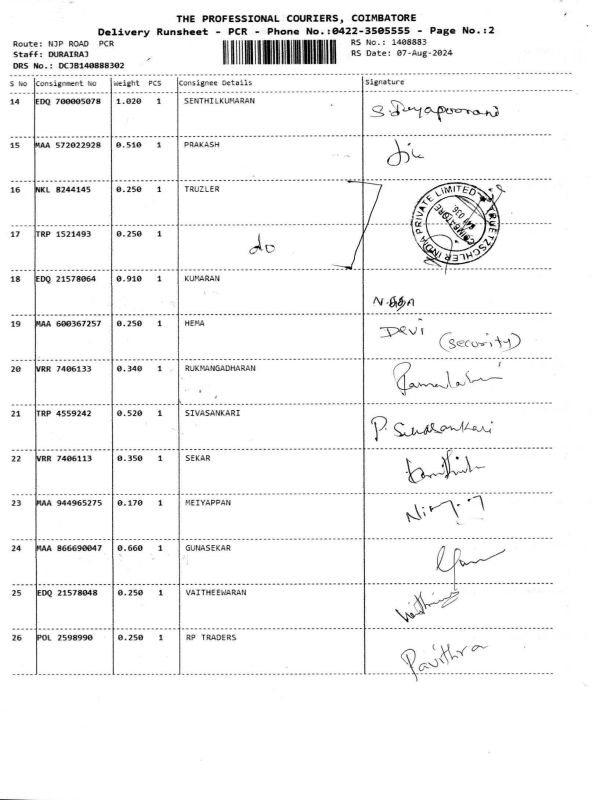 THE PROFESSIONAL COURIERS, COIMBATORE
Delivery Runsheet - PCR - Phone No.:0422-3505555 - Page No.:2
Route: NJP ROAD PCR
Staff: DURAIRAJ
DRS No.: DCJB140888302
RS No.: 1408883
RS Date: 07-Aug-2024
S No Consignment No Weight PCS Consignee Details Signature
14 EDQ 700005078 1.020 1 SENTHILKUMARAN
15 MAA 572022928 0.510 1 PRAKASH
16 NKL 8244145 0.250 1 TRUZLER
TRUETZSCHLER INDIA PRIVATE LIMITED
COIMBATORE
17 TRP 1521493 0.250 1 do
18 EDQ 21578064 0.910 1 KUMARAN
19 MAA 600367257 0.250 1 HEMA DEVI
(security)
20 VRR 7406133 0.340 1 RUKMANGADHARAN
21 TRP 4559242 0.520 1 SIVASANKARI P. Sivasankari
22 VRR 7406113 0.350 1 SEKAR
23 MAA 944965275 0.170 1 MEIYAPPAN
24 MAA 866690047 0.660 1 GUNASEKAR
25 EDQ 21578048 0.250 1 VAITHEEWARAN
26 POL 2598990 0.250 1 RP TRADERS Pavithra